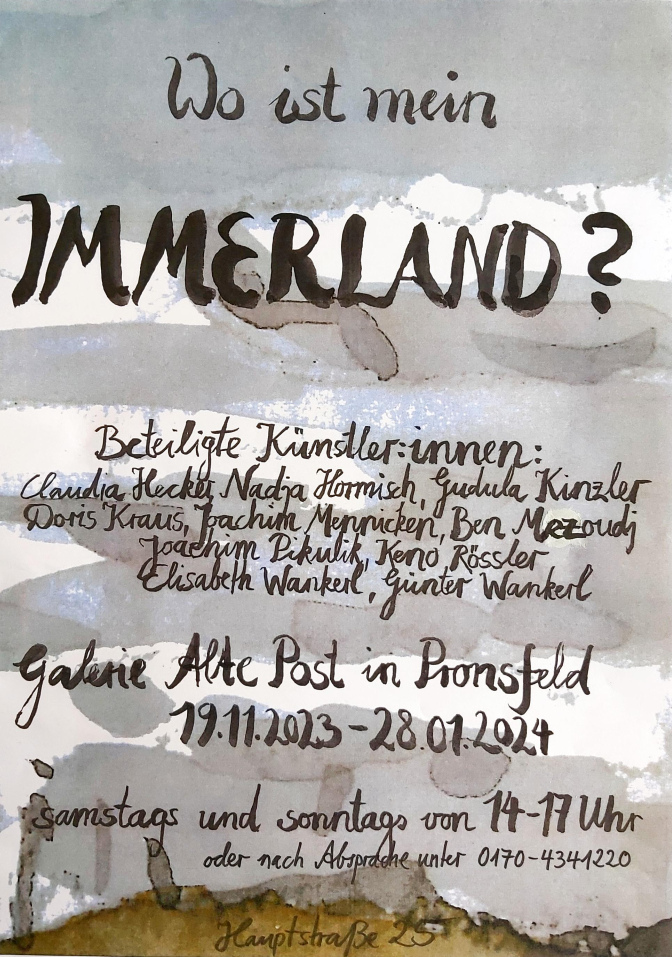 Wo ist mein
IMMERLAND?
Beteiligte Künstler:innen:
Claudia Hecker, Nadja Hormisch, Gudula Kinzler
Doris Kraus, Joachim Mennicken, Ben Mrzoudj
Joachim Pikulik, Keno Rössler
Elisabeth Wankerl, Günter Wankerl
Galerie Alte Post in Pronsfeld
19.11.2023 - 28.01.2024
samstags und sonntags von 14-17 Uhr
oder nach Absprache unter 0170-4341220
Hauptstraße 25